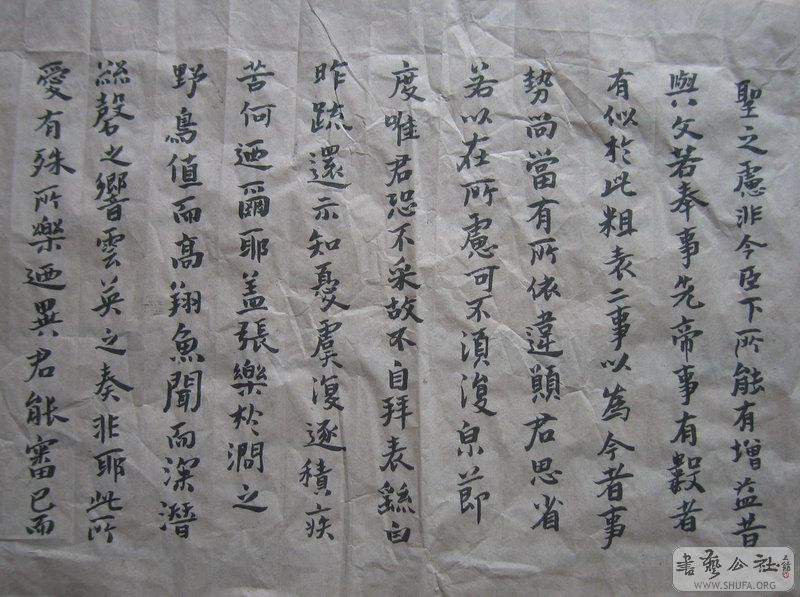 聖之慮非今臣下所能有增益昔
與文若奉事先帝事有數者
有似於此粗表二事以為今者事
勢尚當有所依違願君思省
若以在所慮可不須復皃節
度唯君恐不采故不自拜表繇白
昨疏還示知憂虞復逐積疾
苦何迺爾耶盖張樂於澗之
野鳥值而高翔魚聞而深潛
絲磬之響雲英之奏非耶此所
愛有殊所樂迺異君能審已而
書藝公社
WWW.SHUFA.ORG